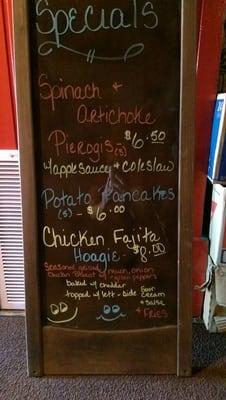 Specials
Spinach +
Artichoke
Pierogis (5) $6.50
w/applesauce + coleslaw
Potato Pancakes
(5) - $6.00
Chicken Fajita
Hoagie - $8.00
Seasoned grilled
chicken breast w/ onion
peppers
baked w/ cheddar
topped w/ Sour
cream
+ salsa
+ FRIES